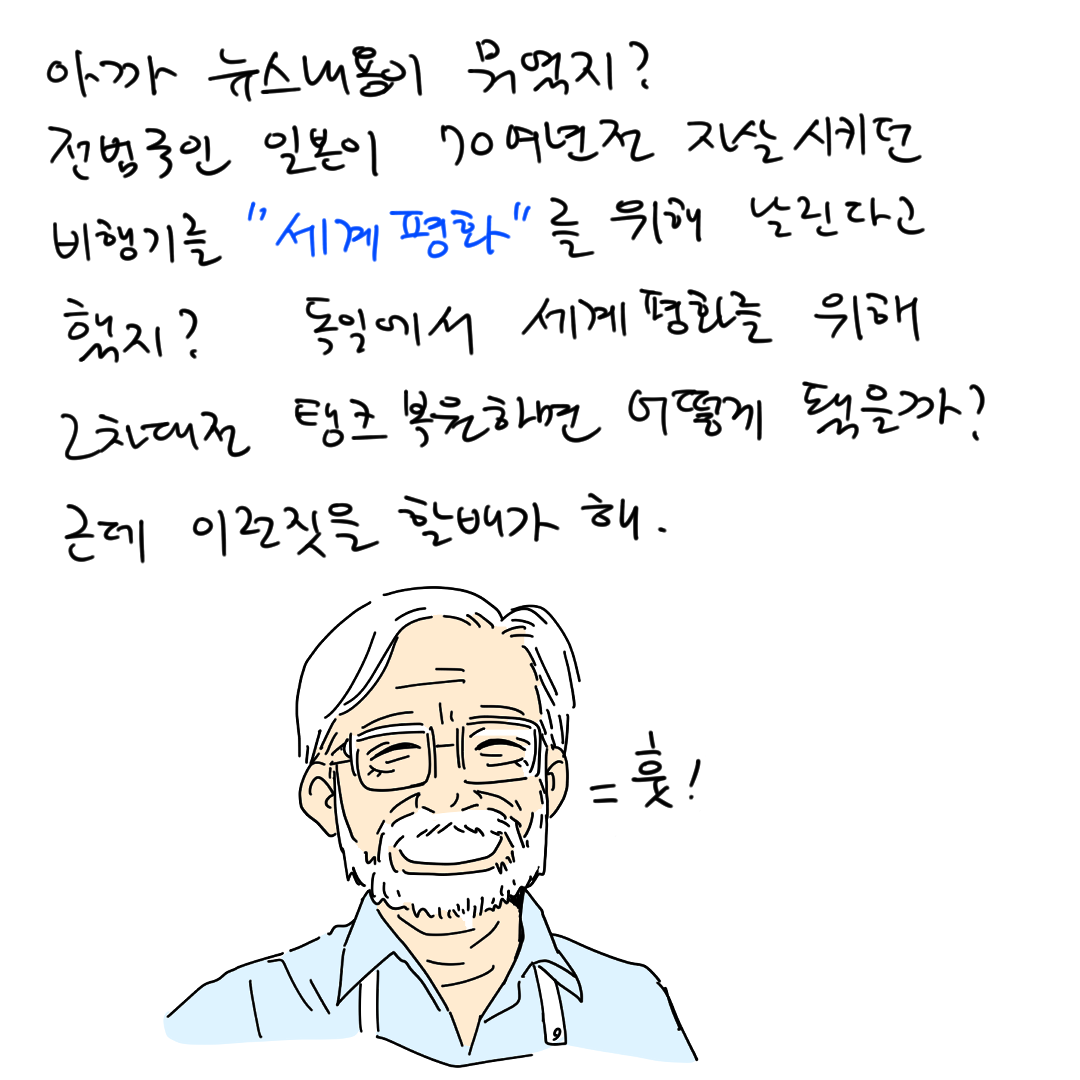 아까 뉴스내용이 뭐였지?
전범국인 일본이 70여년전 자살시키던
비행기를 "세계평화"를 위해 날린다고
했지? 독일에서 세계평화를 위해
2차대전 탱크복원하면 어떻게 됐을까?
근데 이런짓을 할배가 해.
= 훗!